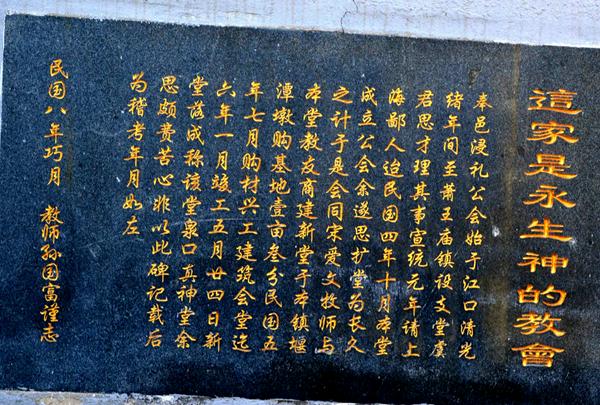 這家是永生神的教會
奉邑浸礼公会始于江口清光
绪年间至萧王庙镇设支堂虞
君思才理其事宣统元年请上
海鄙人迨民国四年十月本堂
成立公会余遂思扩堂为长久
之计于是会同宋爱文牧师与
本堂教友商建新堂于本镇堰
潭墩购基地壹亩叁分民国五
年七月购材兴工建筑会堂迄
六年一月竣工五月廿四日新
堂落成称该堂泉口真神堂余
思颇费苦心非以此碑记载后
为稽考年月如左
民国八年巧月 教师孙国富谨志